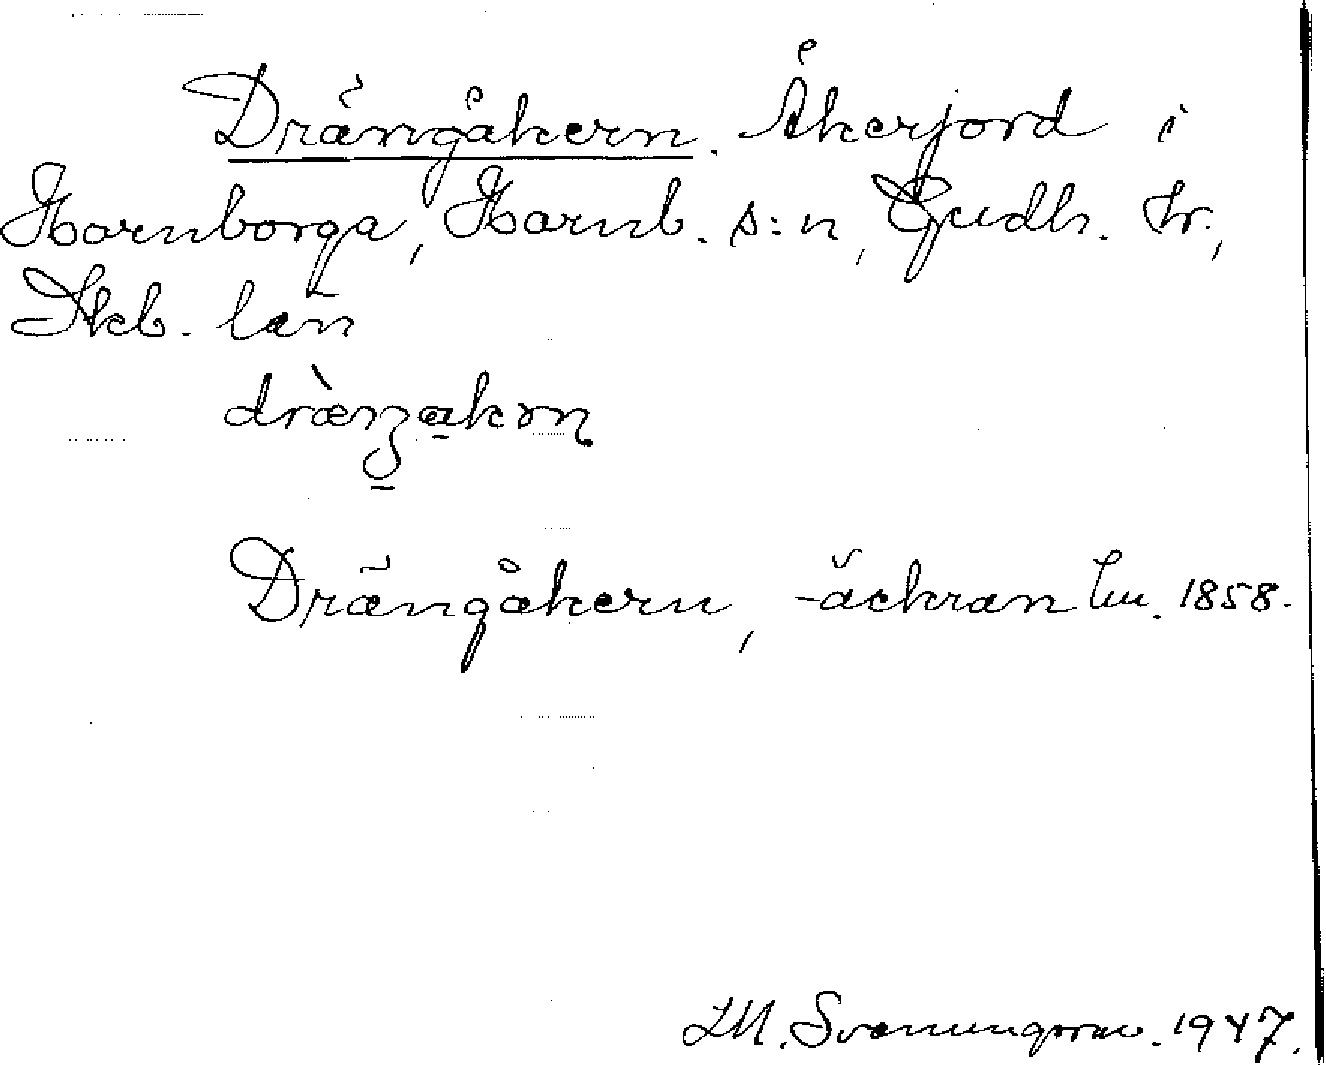 Drängåkern. Åkerjord i
Hornborga, Hornb. s:n, Gudh. hr.,
Skb. län
dræ̀ŋakɔn
Drängåkern, -äckran Lm. 1858.
M. Svenungsson. 1947.